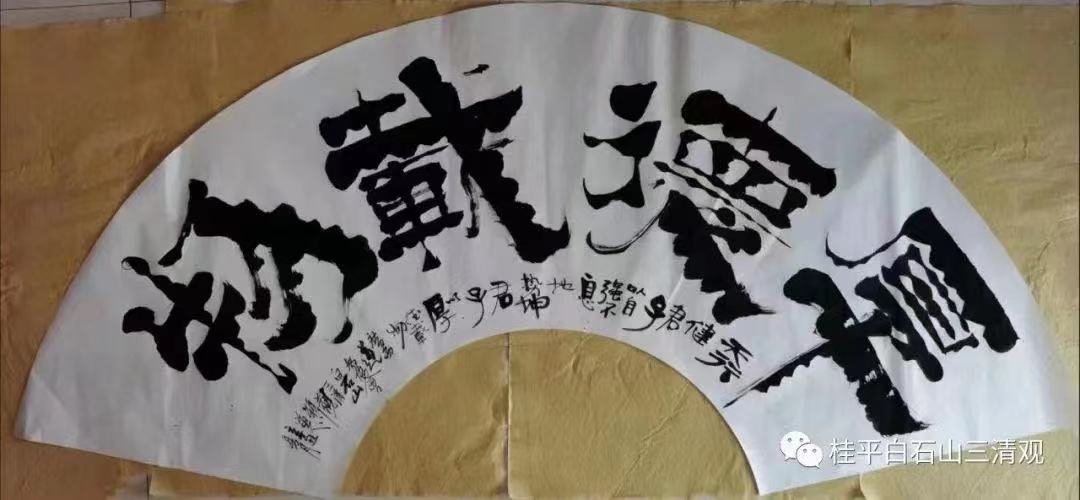 厚澤載物
天行健君子以自強不息地勢坤君子以厚德載物
白石山
桂平白石山三清观